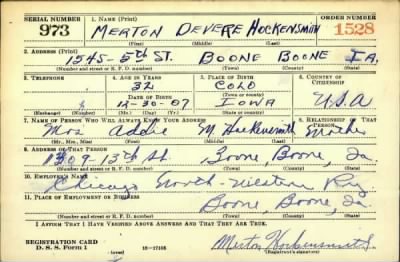 SERIAL NUMBER 1. NAME (Print) ORDER NUMBER
973 MERTON DEVERE HOCKENSMITH 1528
(First) (Middle) (Last)
2. ADDRESS (Print)
1545-5TH ST. BOONE BOONE IA.
(Number and street or R. F. D. number) (Town) (County) (State)
3. TELEPHONE 4. AGE IN YEARS 5. PLACE OF BIRTH 6. COUNTRY OF CITIZENSHIP
32 COLO
DATE OF BIRTH (Town or county)
12-30-07 IOWA U.S.A
(Exchange) (Number) (Mo.) (Day) (Yr.) (State or country)
7. NAME OF PERSON WHO WILL ALWAYS KNOW YOUR ADDRESS 8. RELATIONSHIP OF THAT PERSON
Mrs Addie M. Hockensmith Mother
(Mr., Mrs., Miss) (First) (Middle) (Last)
9. ADDRESS OF THAT PERSON
1309-13th St. Boone, Boone, Ia.
(Number and street or R. F. D. number) (Town) (County) (State)
10. EMPLOYER'S NAME
Chicago North-Western Ry
11. PLACE OF EMPLOYMENT OR BUSINESS
Boone, Boone, Ia.
(Number and street or R. F. D. number) (Town) (County) (State)
I AFFIRM THAT I HAVE VERIFIED ABOVE ANSWERS AND THAT THEY ARE TRUE.
REGISTRATION CARD
D. S. S. Form 1 (over) 16-17105 Merton Hockensmith
(Registrant's signature)